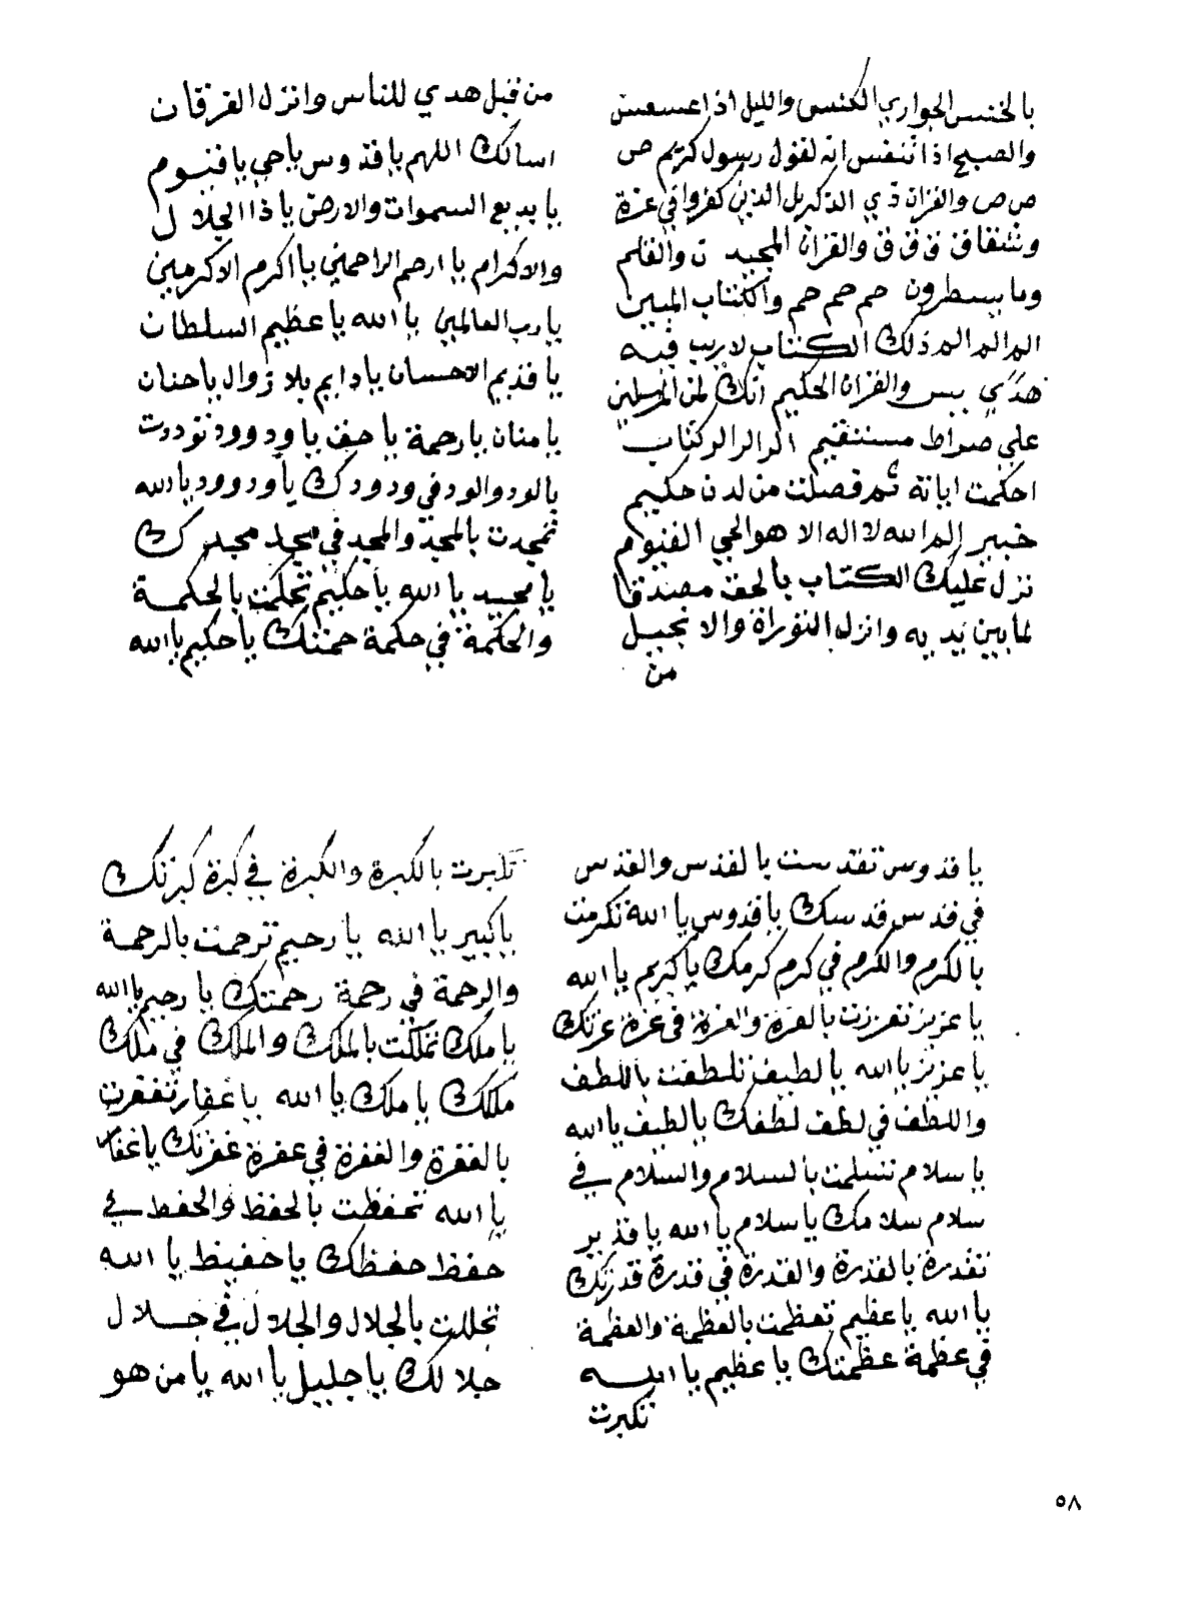 بالخنس الجواري الكنس والليل اذا عسعس
والصبح اذا تنفس انه لقول رسول كريم ص
ص ص والقران ذي الذكر بل الذين كفروا في عزة
وشقاق ق ق ق والقران المجيد ن والقلم
وما يسطرون حم حم حم والكتاب المبين
الم الم الم ذلك الكتاب لا ريب فيه
هدي يس والقران الحكيم انك لمن المرسلين
علي صراط مستقيم الر الر الر كتاب
احكمت اياته ثم فصلت من لدن حكيم
خبير الم الله لا اله الا هو الحي القيوم
نزل عليك الكتاب بالحق مصدقا
لما بين يديه وانزل التوراة والانجيل
من
من قبل هدي للناس وانزل الفرقان
اسالك اللهم يا قدوس يا حي يا قيوم
يا بديع السموات والارض يا ذا الجلال
والاكرام يا ارحم الراحمين يا اكرم الاكرمين
يا رب العالمين يا الله يا عظيم السلطان
يا قديم الاحسان يا دايم بلا زوال يا حنان
يا منان يا رحمة يا حق يا ودود توددت
بالود والود في ود ودك يا ودود يا الله
تمجدت بالمجد والمجد في مجد مجدك
يا مجيد يا الله يا حكيم تحكمت بالحكمة
والحكمة في حكمة حكمتك يا حكيم يا الله
يا قدوس تقدست بالقدس والقدس
في قدس قدسك يا قدوس يا الله تكرمت
بالكرم والكرم في كرم كرمك يا كريم يا الله
يا عزيز تعززت بالعزة والعزة في عزة عزتك
يا عزيز يا الله يا لطيف تلطفت باللطف
واللطف في لطف لطفك يا لطيف يا الله
يا سلام تسلمت بالسلام والسلام في
سلام سلامك يا سلام يا الله يا قدير
تقدرة بالقدرة والقدرة في قدرة قدرتك
يا الله يا عظيم تعظمت بالعظمة والعظمة
في عظمة عظمتك يا عظيم يا الله
تكبرت
تكبرت بالكبرة والكبرة في كبرة كبرتك
يا كبير يا الله يا رحيم ترحمت بالرحمة
والرحمة في رحمة رحمتك يا رحيم يا الله
يا ملك تملكت بالملك والملك في ملك
ملكك يا ملك يا الله يا غفار تغفرت
بالغفرة والغفرة في غفرة غفرتك يا غفار
يا الله تحفظت بالحفظ والحفظ في
حفظ حفظك يا حفيظ يا الله
تجللت بالجلال والجلال في جلال
جلالك يا جليل يا الله يا من هو
٥٨